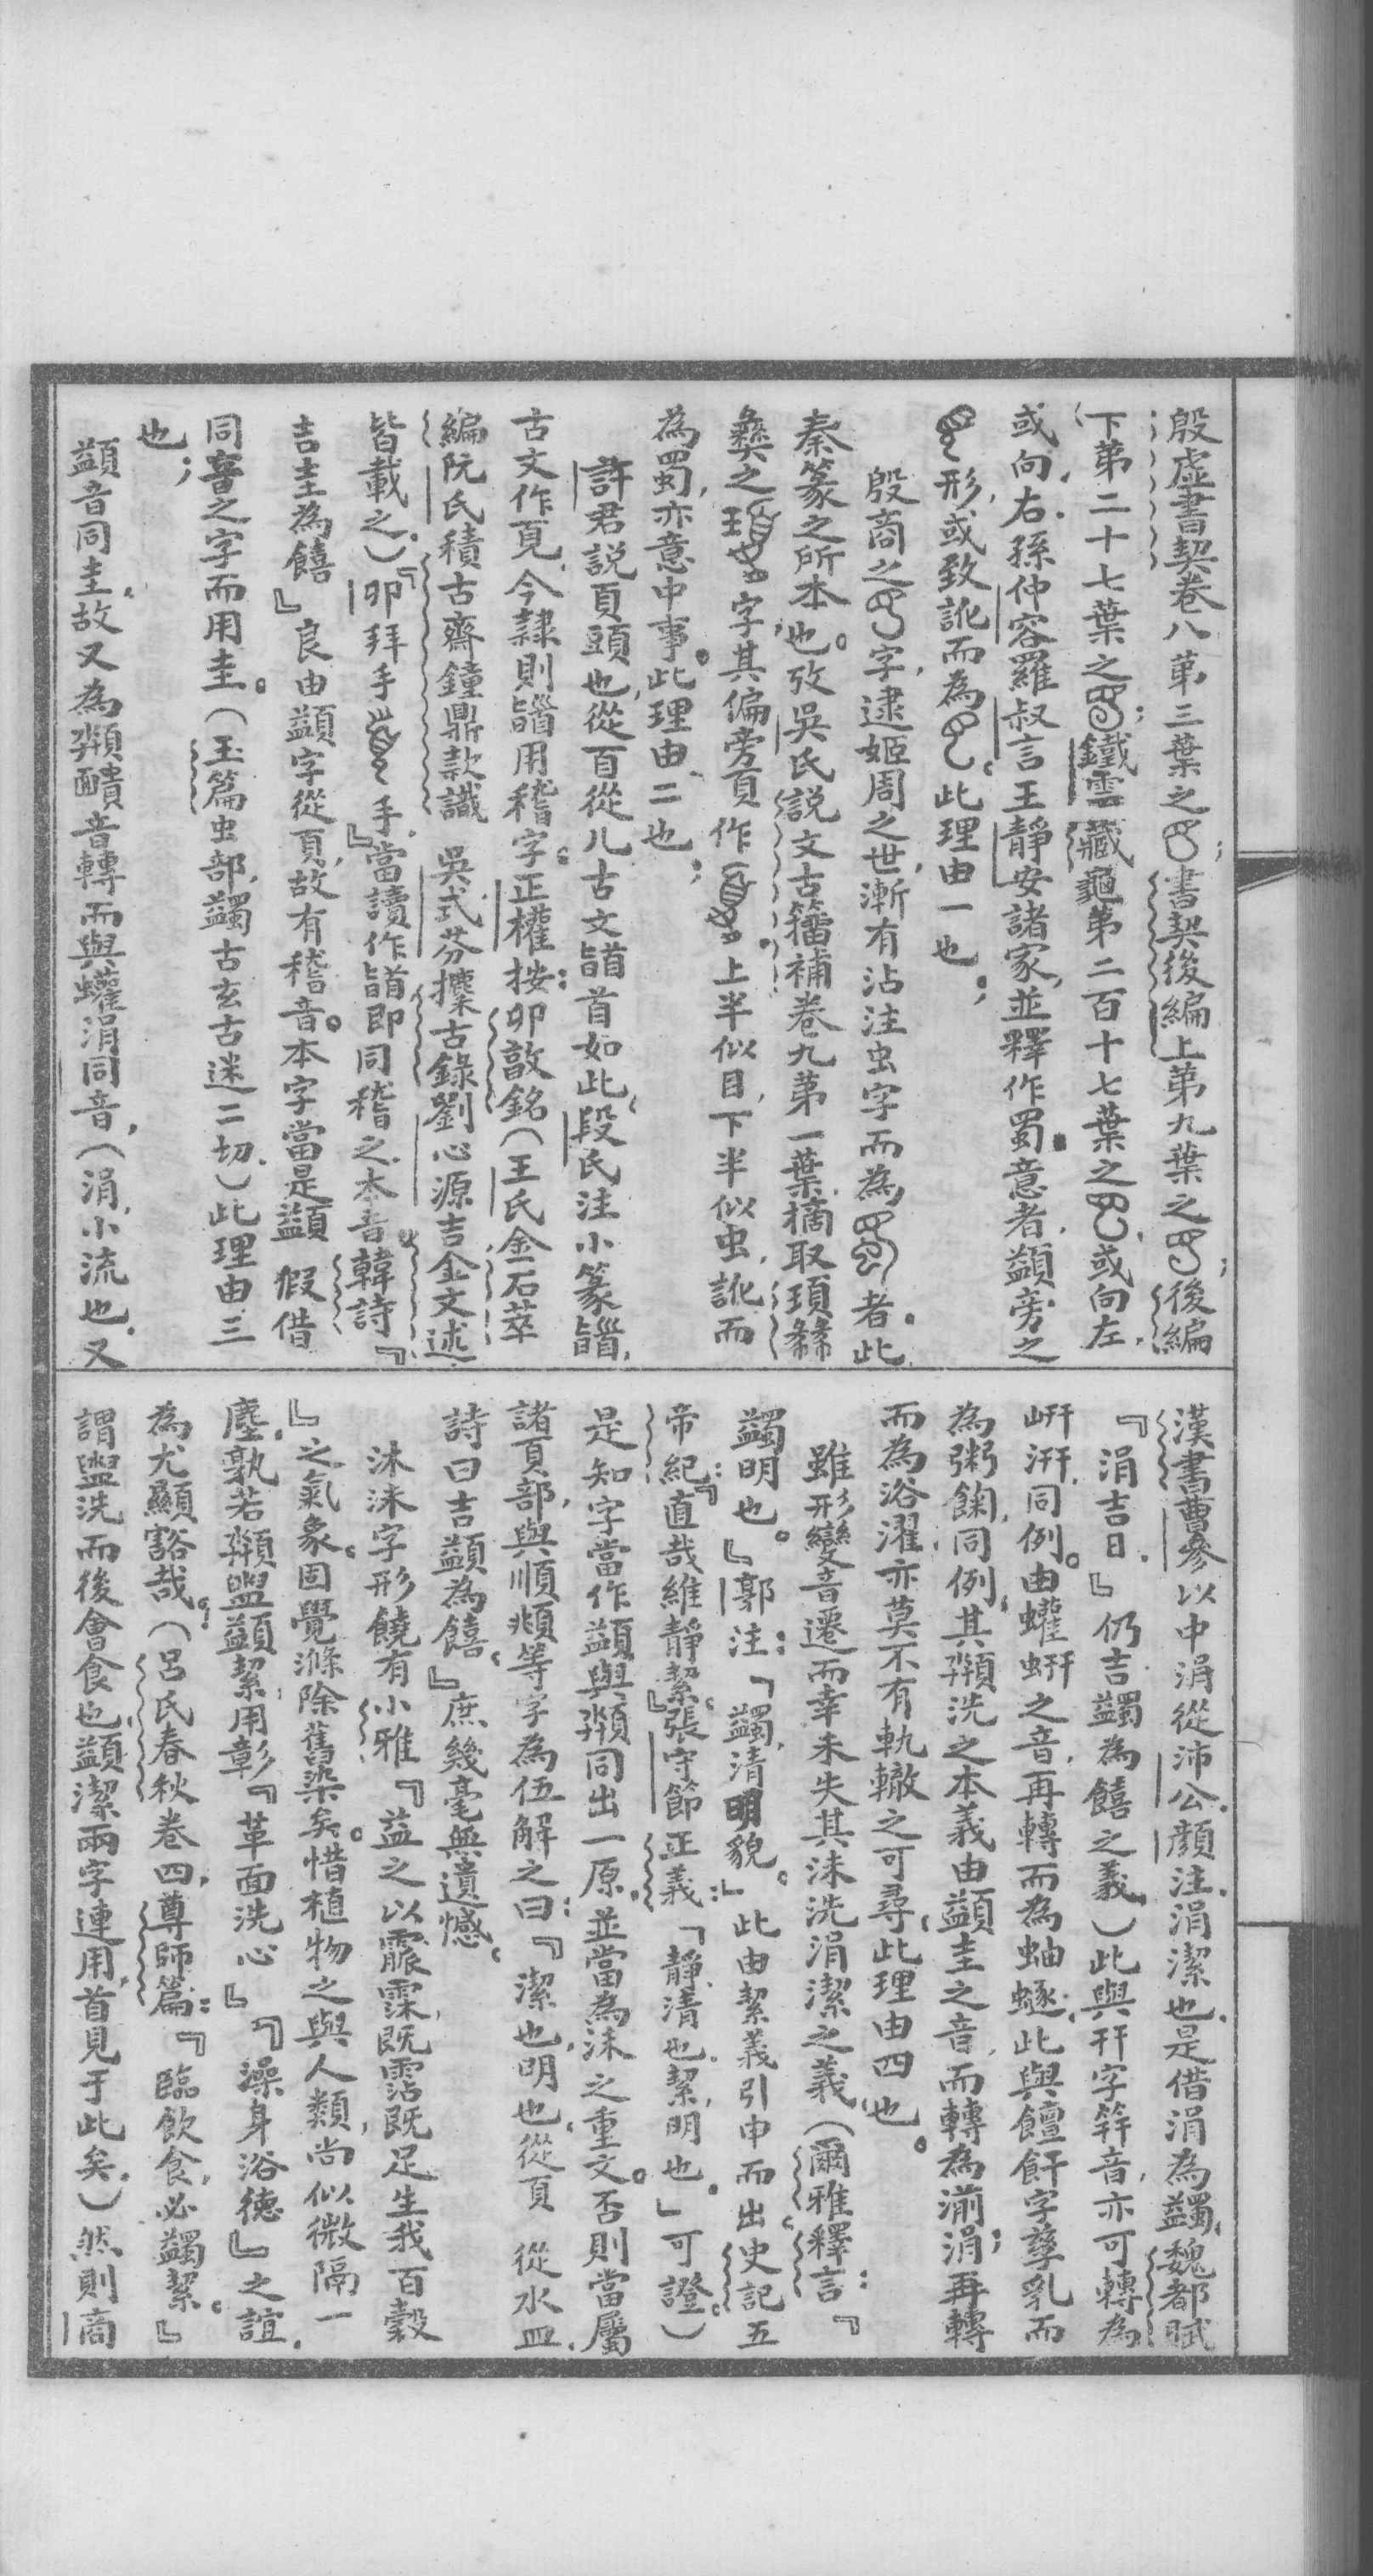 殷虛書契卷八第三葉之；書契後編上第九葉之；後編
下第二十七葉之；鐵雲藏龜第二百十七葉之，或向左，
或向右．孫仲容羅叔言王靜安諸家，並釋作蜀．意者，旁之
形，或致訛而為，此理由一也；
殷商之字，逮姬周之世，漸有沾注虫字而為者．此
秦篆之所本也。攷吳氏說文古籀補卷九第一葉，摘取頊
彝之字，其偏旁頁作．上半似目，下半似虫，訛而
為蜀，亦意中事。此理由二也；
許君說頁頭也，從𦣻從儿古文䭫首如此，段氏注小篆䭫，
古文作頁，今隸則䭫用稽字。正權按：卯敦銘（王氏金石萃
編阮氏積古齋鐘鼎款識　吳式芬攈古錄劉心源吉金文述
皆載之．）『卯拜手手，』當讀作䭫即同稽之本音。韓詩『
吉圭為饎』良由字從頁，故有稽音。本字當是　假借
同音之字而用圭。（玉篇虫部，蠲古玄古迷二切．）此理由三
也；
音同圭，故又為類靧音轉而與蠸涓同音，（涓，小流也．又
漢書曹參以中涓從沛公．顏注．涓潔也．是借涓為蠲．魏都賦
『涓吉日．』仍吉蠲為饎之義．）此與幵字筓音，亦可轉為
岍汧，同例。由蠸蚈之音，再轉而為蚰蜒．此與饘飦字孳乳而
為粥餬，同例，其洗之本義由圭之音，而轉為湔涓；再轉
而為浴濯，亦莫不有軌轍之可尋．此理由四也。
雖形變音遷而幸未失其沬洗涓潔之義，（爾雅釋言：『
蠲明也。』郭注：「蠲，清明貌。」此由絜義引申而出．史記五
帝紀：『直哉維靜絜．』張守節正義：「靜，清也．絜，明也．」可證。）
是知字當作與同出一原．並當為沬之重文。否則當屬
諸頁部，與順頫等字為伍解之曰：『潔也，明也，從頁　從水皿．
詩曰吉為饎．』庶幾毫無遺憾．
沐沬字形饒有小雅『益之以霢霂，既霑既足生我百穀
』之氣象．固覺滌除舊染矣．惜植物之與人類，尚似微隔一
塵．孰若盥絜，用彰『革面洗心』『澡身浴德』之誼．
為尤顯豁哉。（呂氏春秋卷四，尊師篇：『臨飲食，必蠲絜．』
謂盥洗而後會食也．潔兩字連用，首見于此矣．）然則商